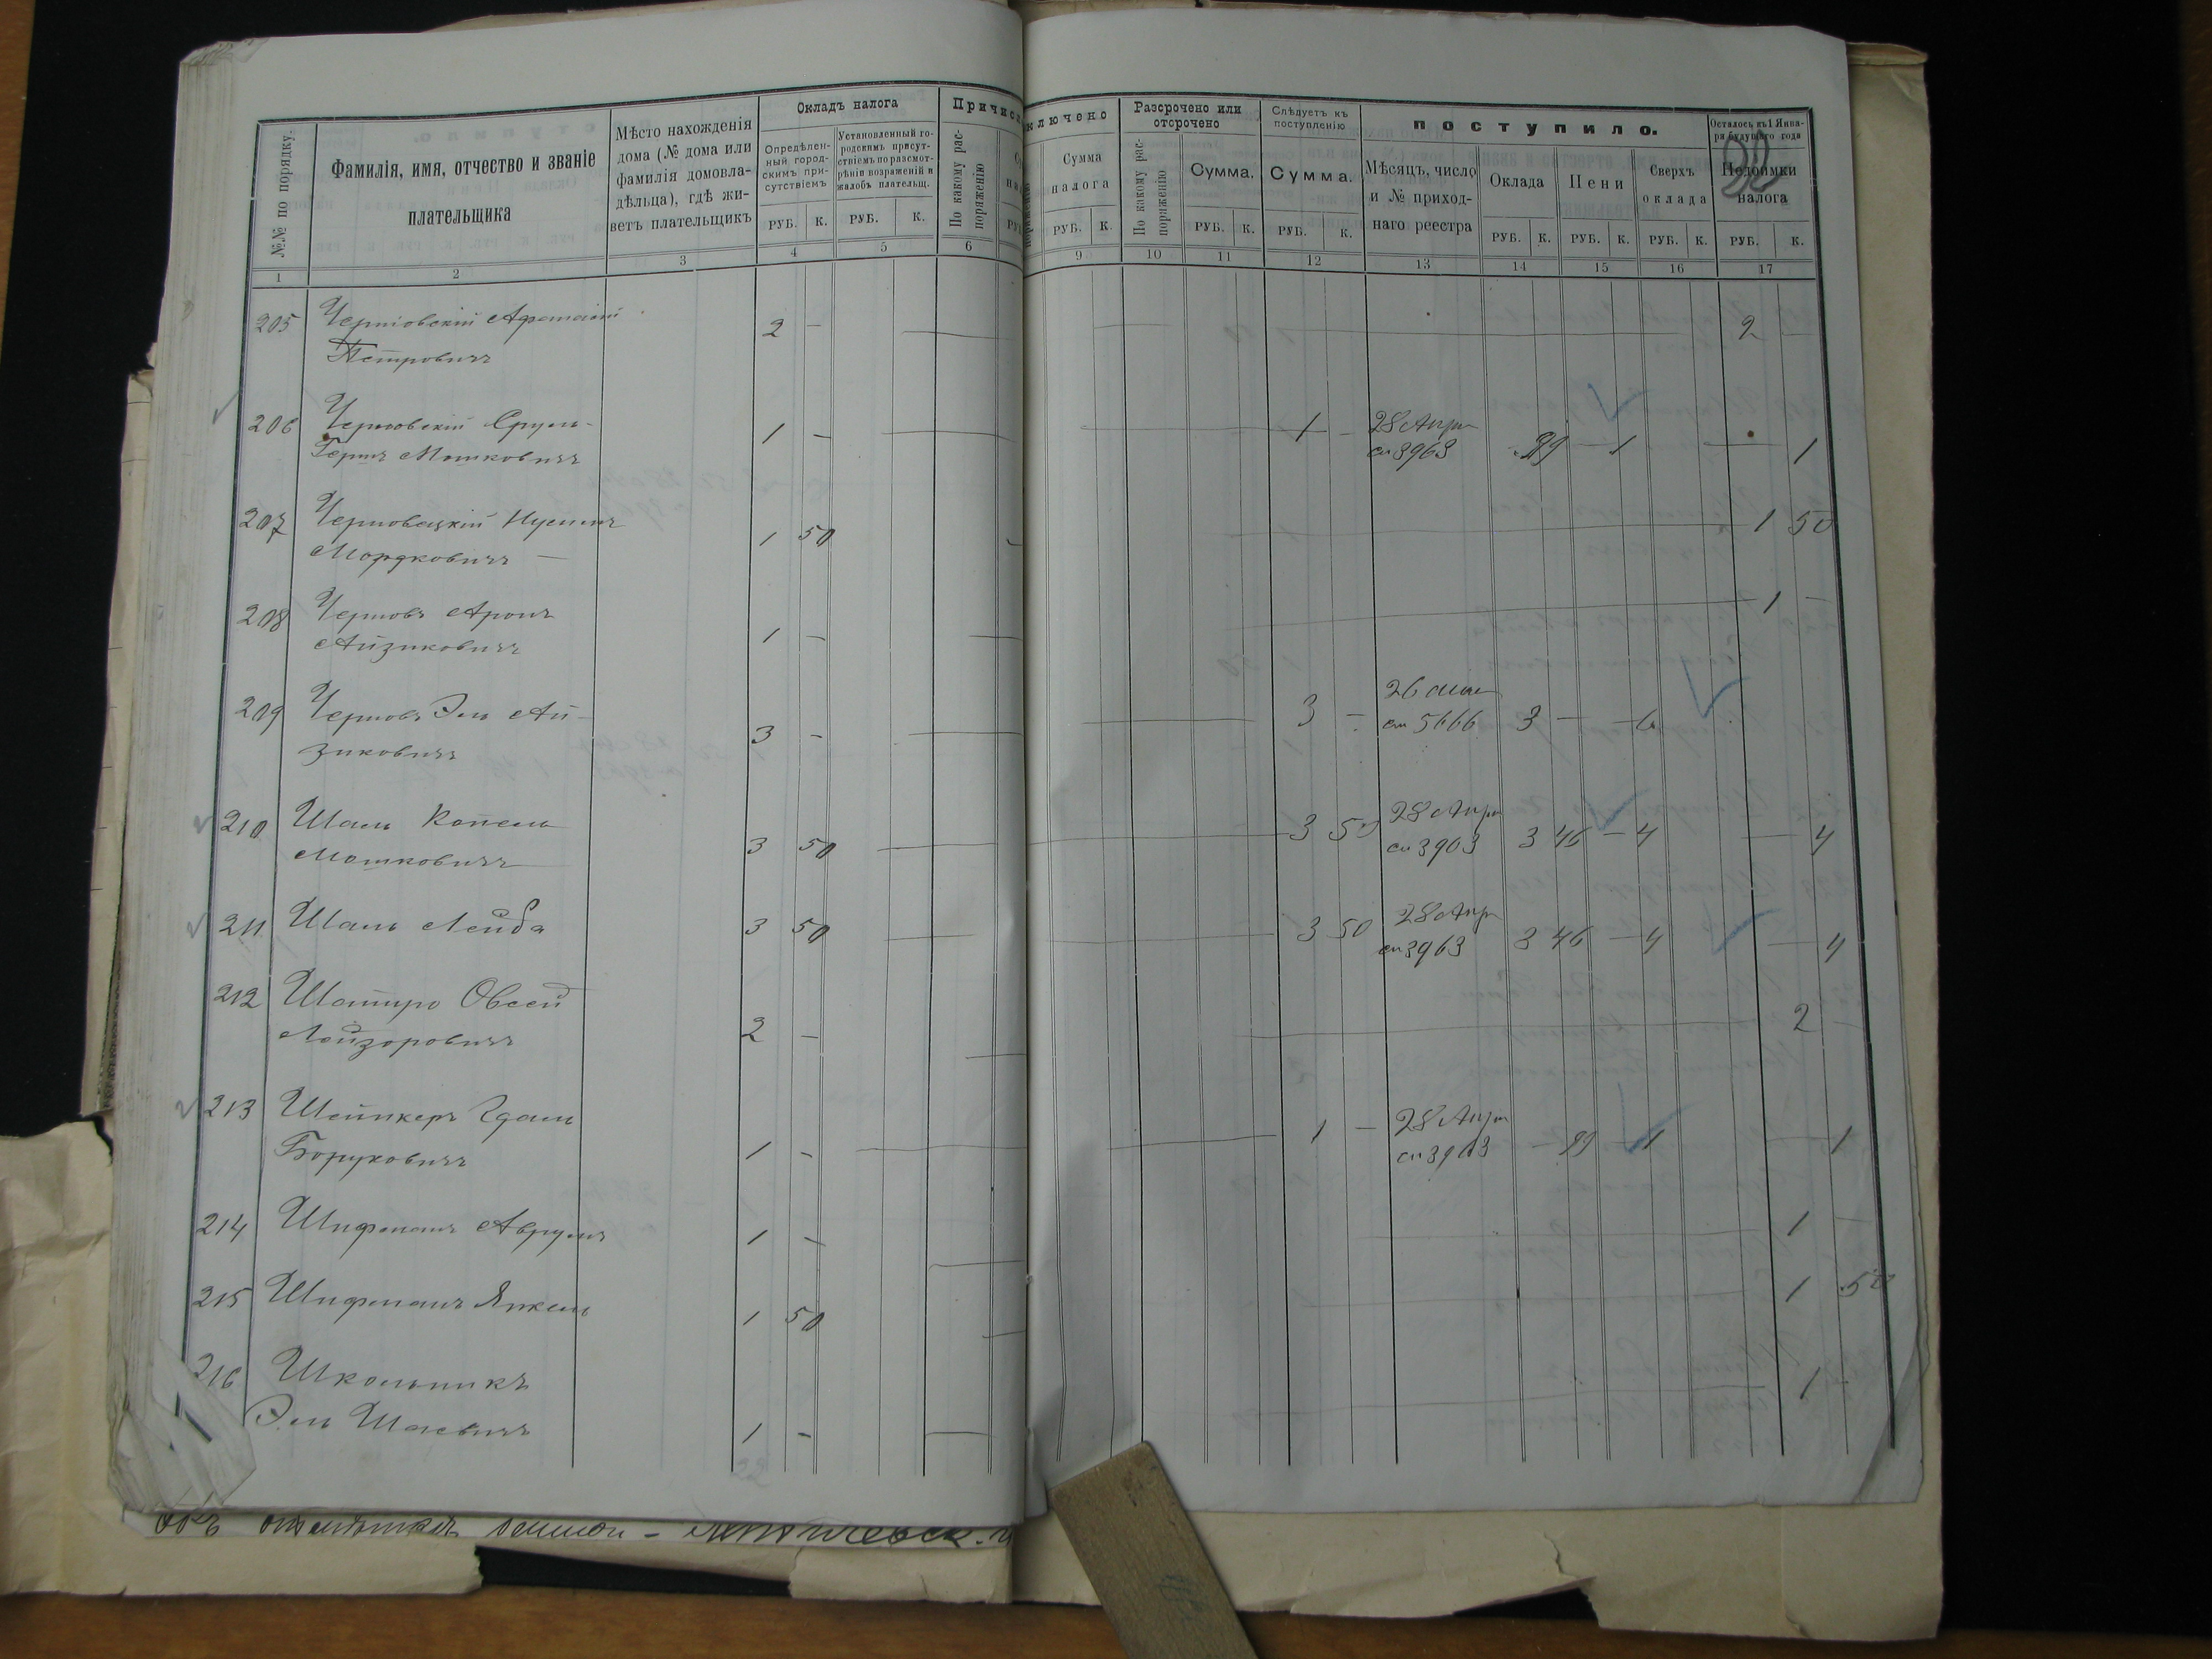 №№ по порядку.
Фамилія, имя, отчество и званіе
плательщика
Мѣсто нахожденія
дома (№ дома или
фамилія домовла-
дѣльца), гдѣ жи-
ветъ плательщикъ
Окладъ налога
Опредѣлен-
ный город-
скимъ при-
сутствіемъ
Установленный го-
родскимъ присут-
ствіемъ по разсмот-
рѣніи возраженій и
жалобъ плательщ.
РУБ. К. РУБ. К.
Причисл
По какому рас-
поряженію
1 2 3 4 5 6
ключено
Сумма
налога
РУБ. К.
Разсрочено или
отсрочено
По какому рас-
поряженію
Сумма.
РУБ. К.
Слѣдуетъ къ
поступленію
Сумма.
РУБ. К.
поступило.
Мѣсяцъ, число
и № приход-
наго реестра
Оклада
РУБ. К.
Пени
РУБ. К.
Сверхъ
оклада
РУБ. К.
Осталось къ 1 Янва-
ря будущаго года
Недоимки
налога
РУБ. К.
9 10 11 12 13 14 15 16 17
205 Афанасій 2 — 2 —
Петровичъ
206 Черновскій Сруль- 1 — 1 — 28 Апр 99 — 1 — 1
Гершъ Мошковичъ ст 3963
207 Черновецкій 1 50 1 50
Мордковичъ —
208 Черновъ Аронъ 1 — 1 —
Айзиковичъ
209 Черновъ Эль Ай- 3 — 3 — 26 3 — 6
зиковичъ ст 5666
210 Шаль Копель 3 50 3 50 28 Апр 3 46 — 4 — 4
Мошковичъ ст 3963
211 Шаль Лейба 3 50 3 50 28 Апр 3 46 — 4 — 4
ст 3963
212 Шапиро Овсей 2 — 2
Лейзоровичъ
213 Гдаль 1 — 1 — 28 Апр — 99 — 1 — 1
Боруховичъ ст 3963
214 Шифманъ Аврумъ 1 — 1 —
215 Шифманъ Янкель 1 50 1 50
216 Школьникъ 1 —
Эль Шаевичъ 1 —